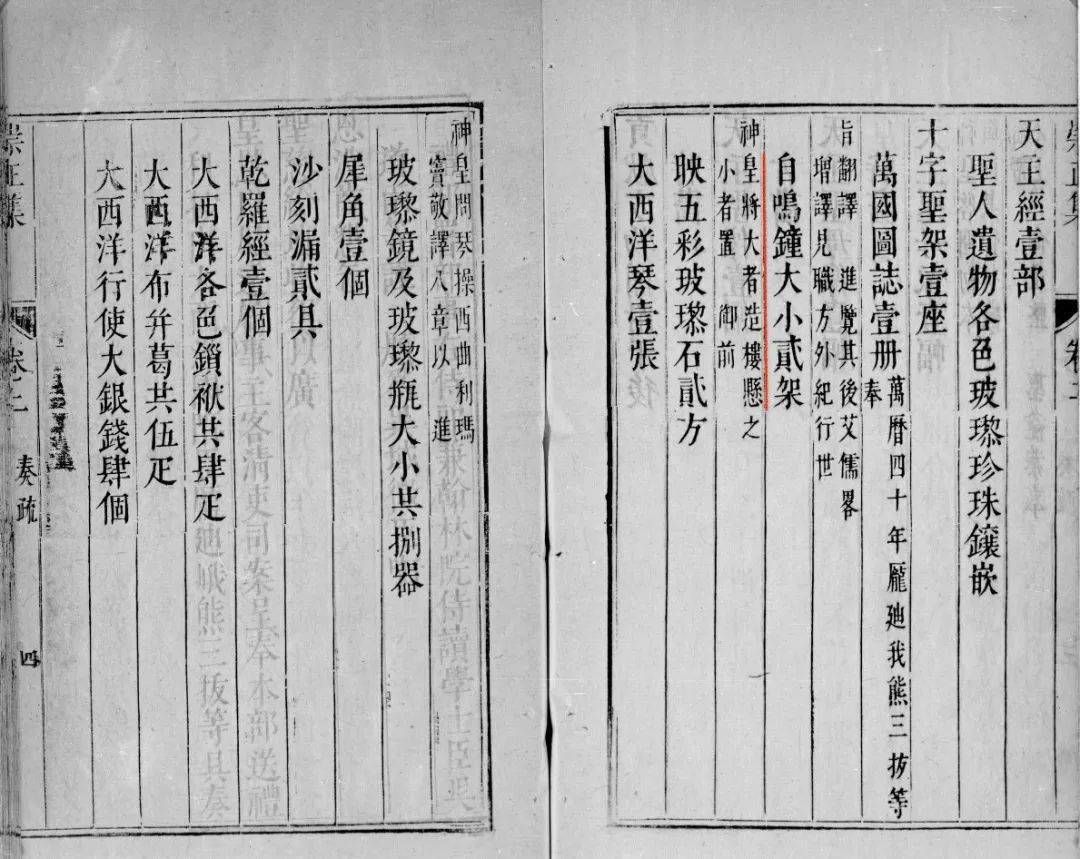 天主經壹部
聖人遺物各色玻瓈珍珠鑲嵌
十字聖架壹座
萬國圖誌壹册 萬曆四十年龎廸我熊三拔等奉
旨翻譯 進覽其後艾儒畧
增譯見職方外紀行世
自鳴鐘大小貳架
神皇將大者造樓懸之
小者置 御前
映五彩玻瓈石貳方
大西洋琴壹張
神皇問琴操西曲利瑪
竇敬譯八章以 進
玻瓈鏡及玻瓈瓶大小共捌器
犀角壹個
沙刻漏貳具
乾羅經壹個
大西洋各色鎖袱共肆疋
大西洋布并葛共伍疋
大西洋行使大銀錢肆個
奏疏
四